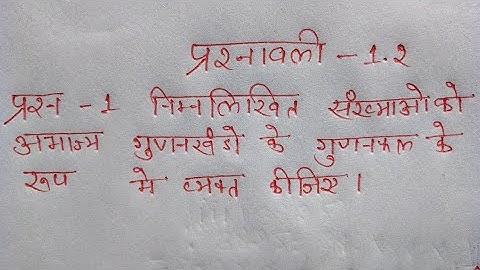 प्रश्नावली - 1.2
प्रश्न - 1 निम्नलिखित संख्याओं को
अभाज्य गुणनखंडो के गुणनफल के
रूप में व्यक्त कीजिए।